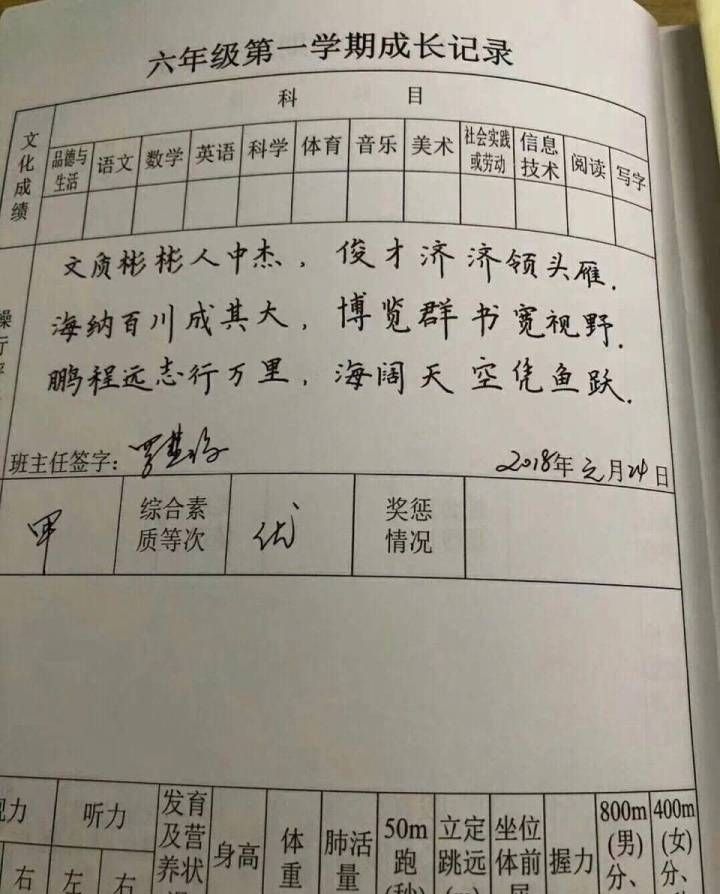 六年级第一学期成长记录
科 目
文化成绩
品德与生活 语文 数学 英语 科学 体育 音乐 美术 社会实践或劳动 信息技术 阅读 写字
文质彬彬人中杰，俊才济济领头雁.
海纳百川成其大，博览群书宽视野.
鹏程远志行万里，海阔天空凭鱼跃.
操行
班主任签字：
2018年元月24日
甲 综合素质等次 优 奖惩情况
视力 听力 发育及营养状 身高 体重 肺活量 50m跑(秒) 立定跳远 坐位体前屈 握力 800m(男)分、 400m(女)分、
右 左 右